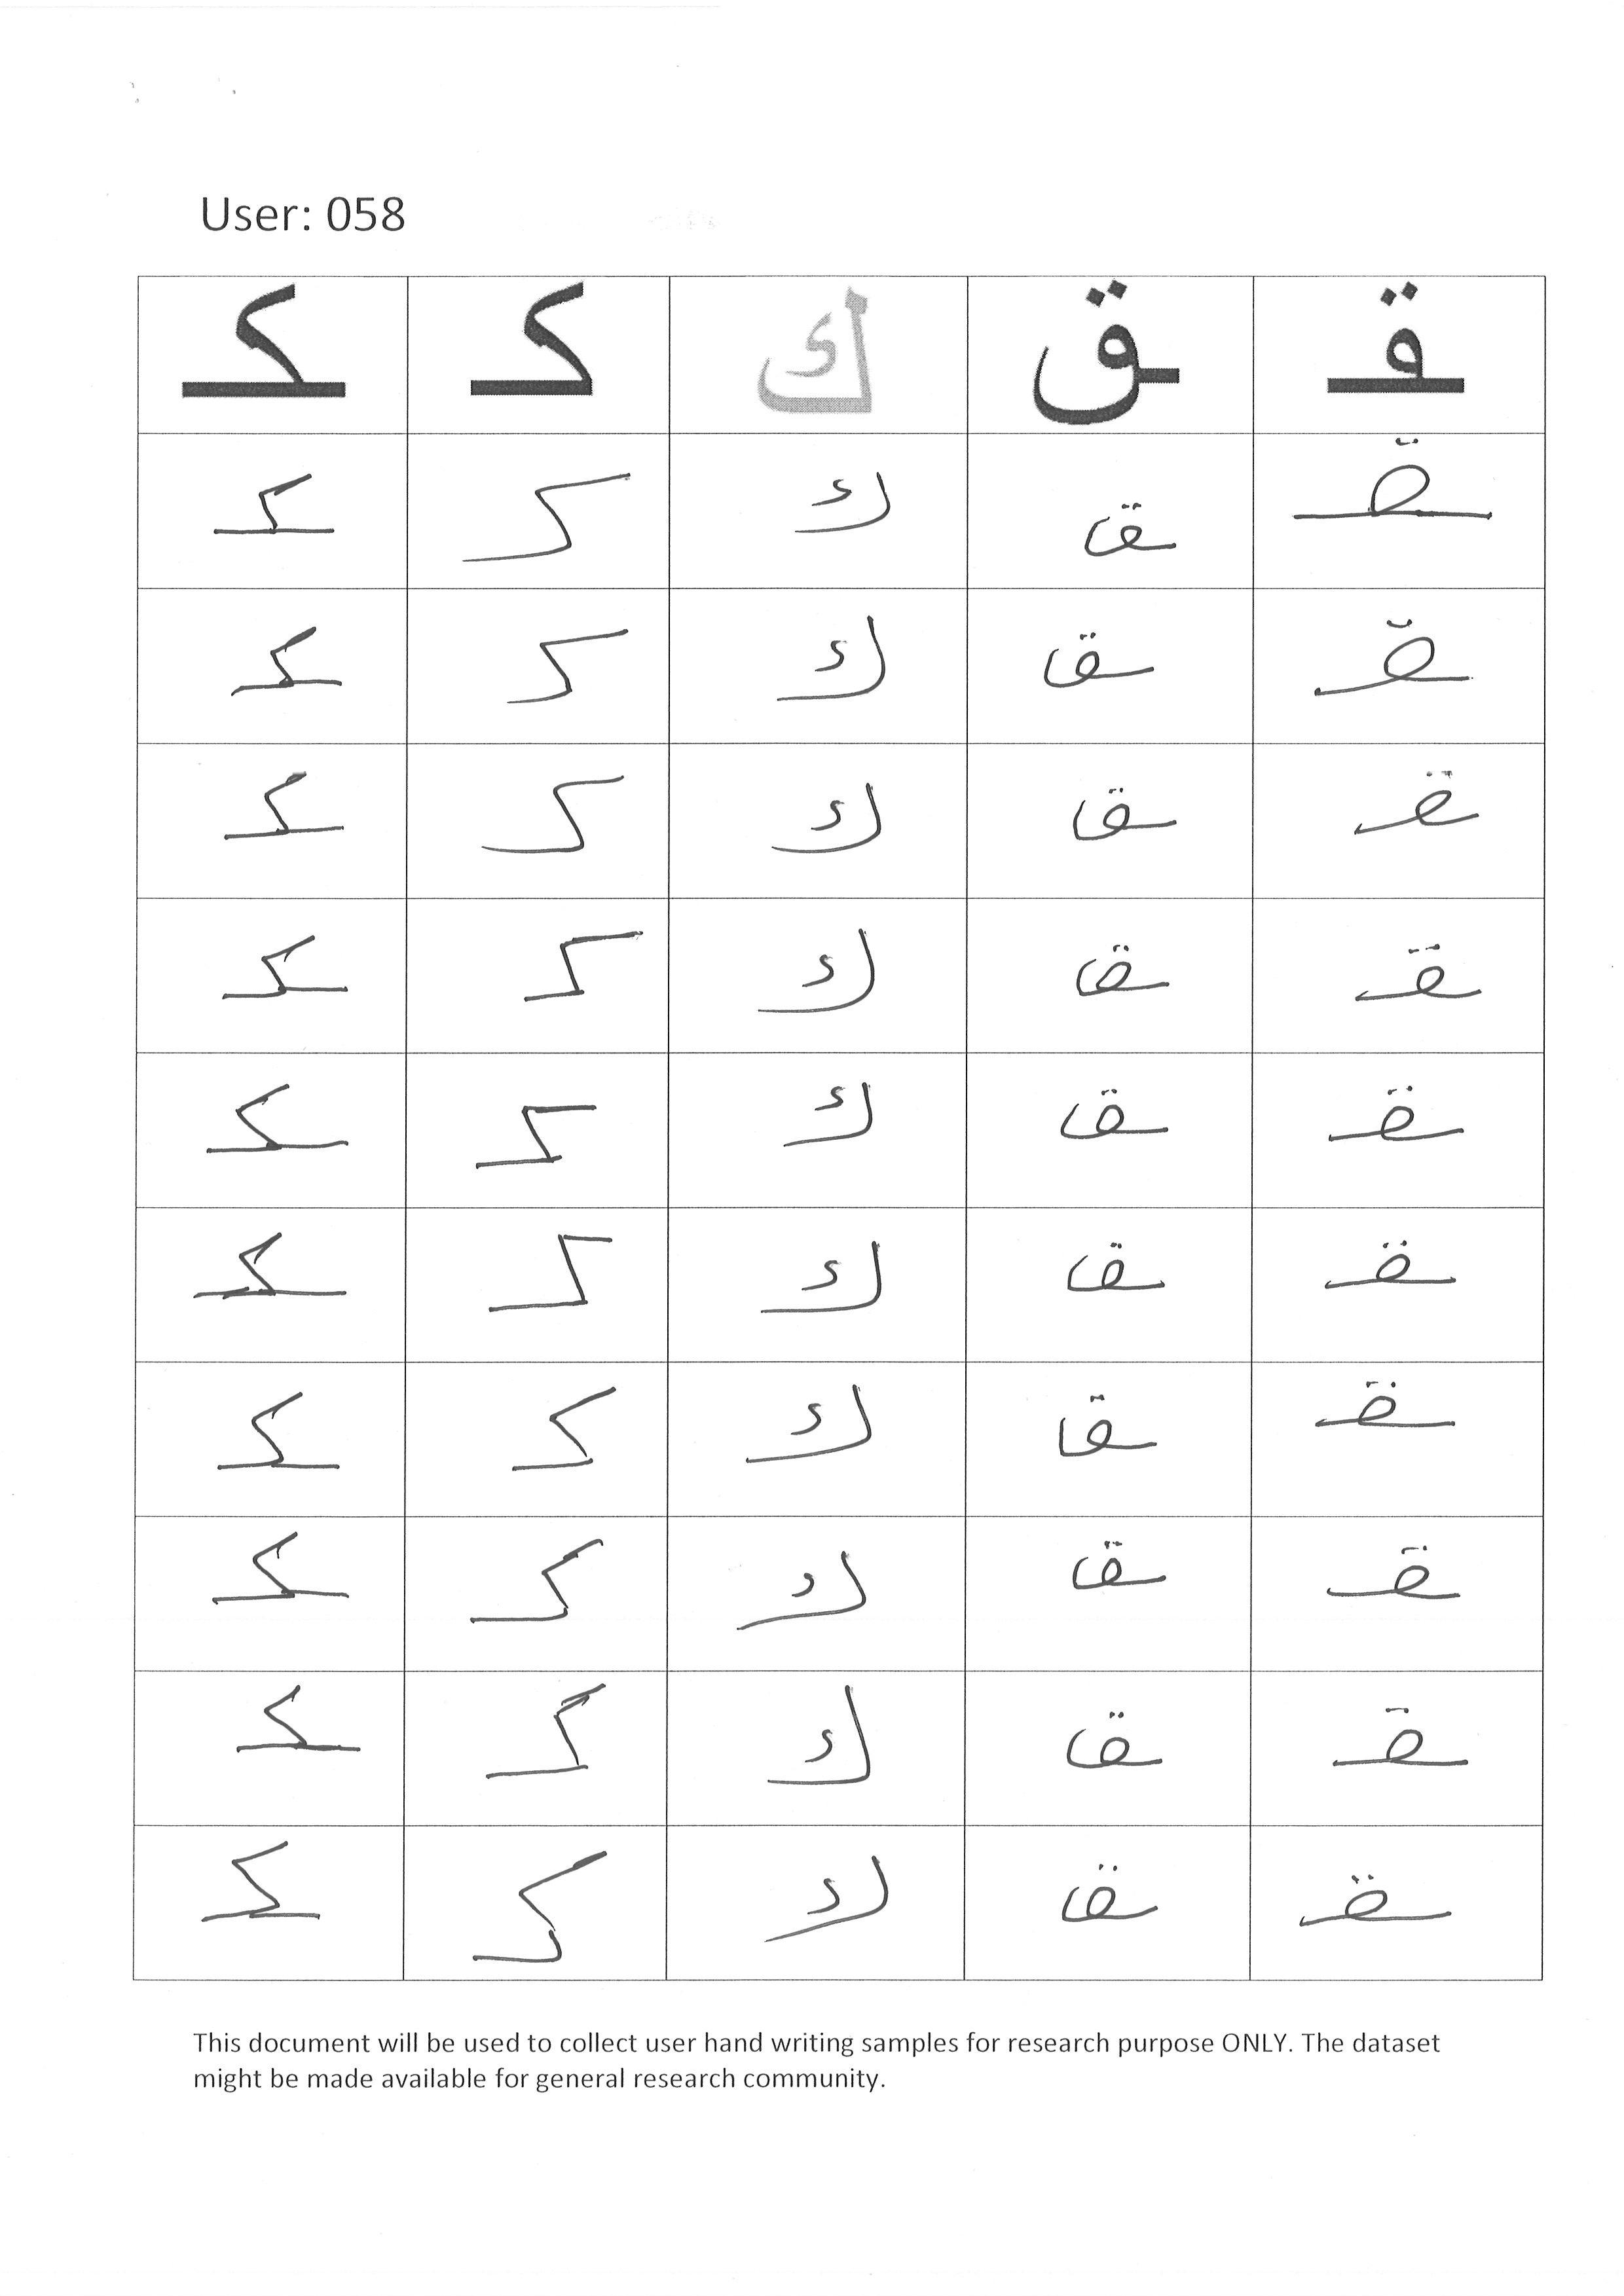 User: 058
ـقـ ـق ك كـ ـكـ
ـقـ ـق ك كـ ـكـ
ـقـ ـق ك كـ ـكـ
ـقـ ـق ك كـ ـكـ
ـقـ ـق ك كـ ـكـ
ـقـ ـق ك كـ ـكـ
ـقـ ـق ك كـ ـكـ
ـقـ ـق ك كـ ـكـ
ـقـ ـق ك كـ ـكـ
ـقـ ـق ك كـ ـكـ
ـقـ ـق ك كـ ـكـ
This document will be used to collect user hand writing samples for research purpose ONLY. The dataset
might be made available for general research community.